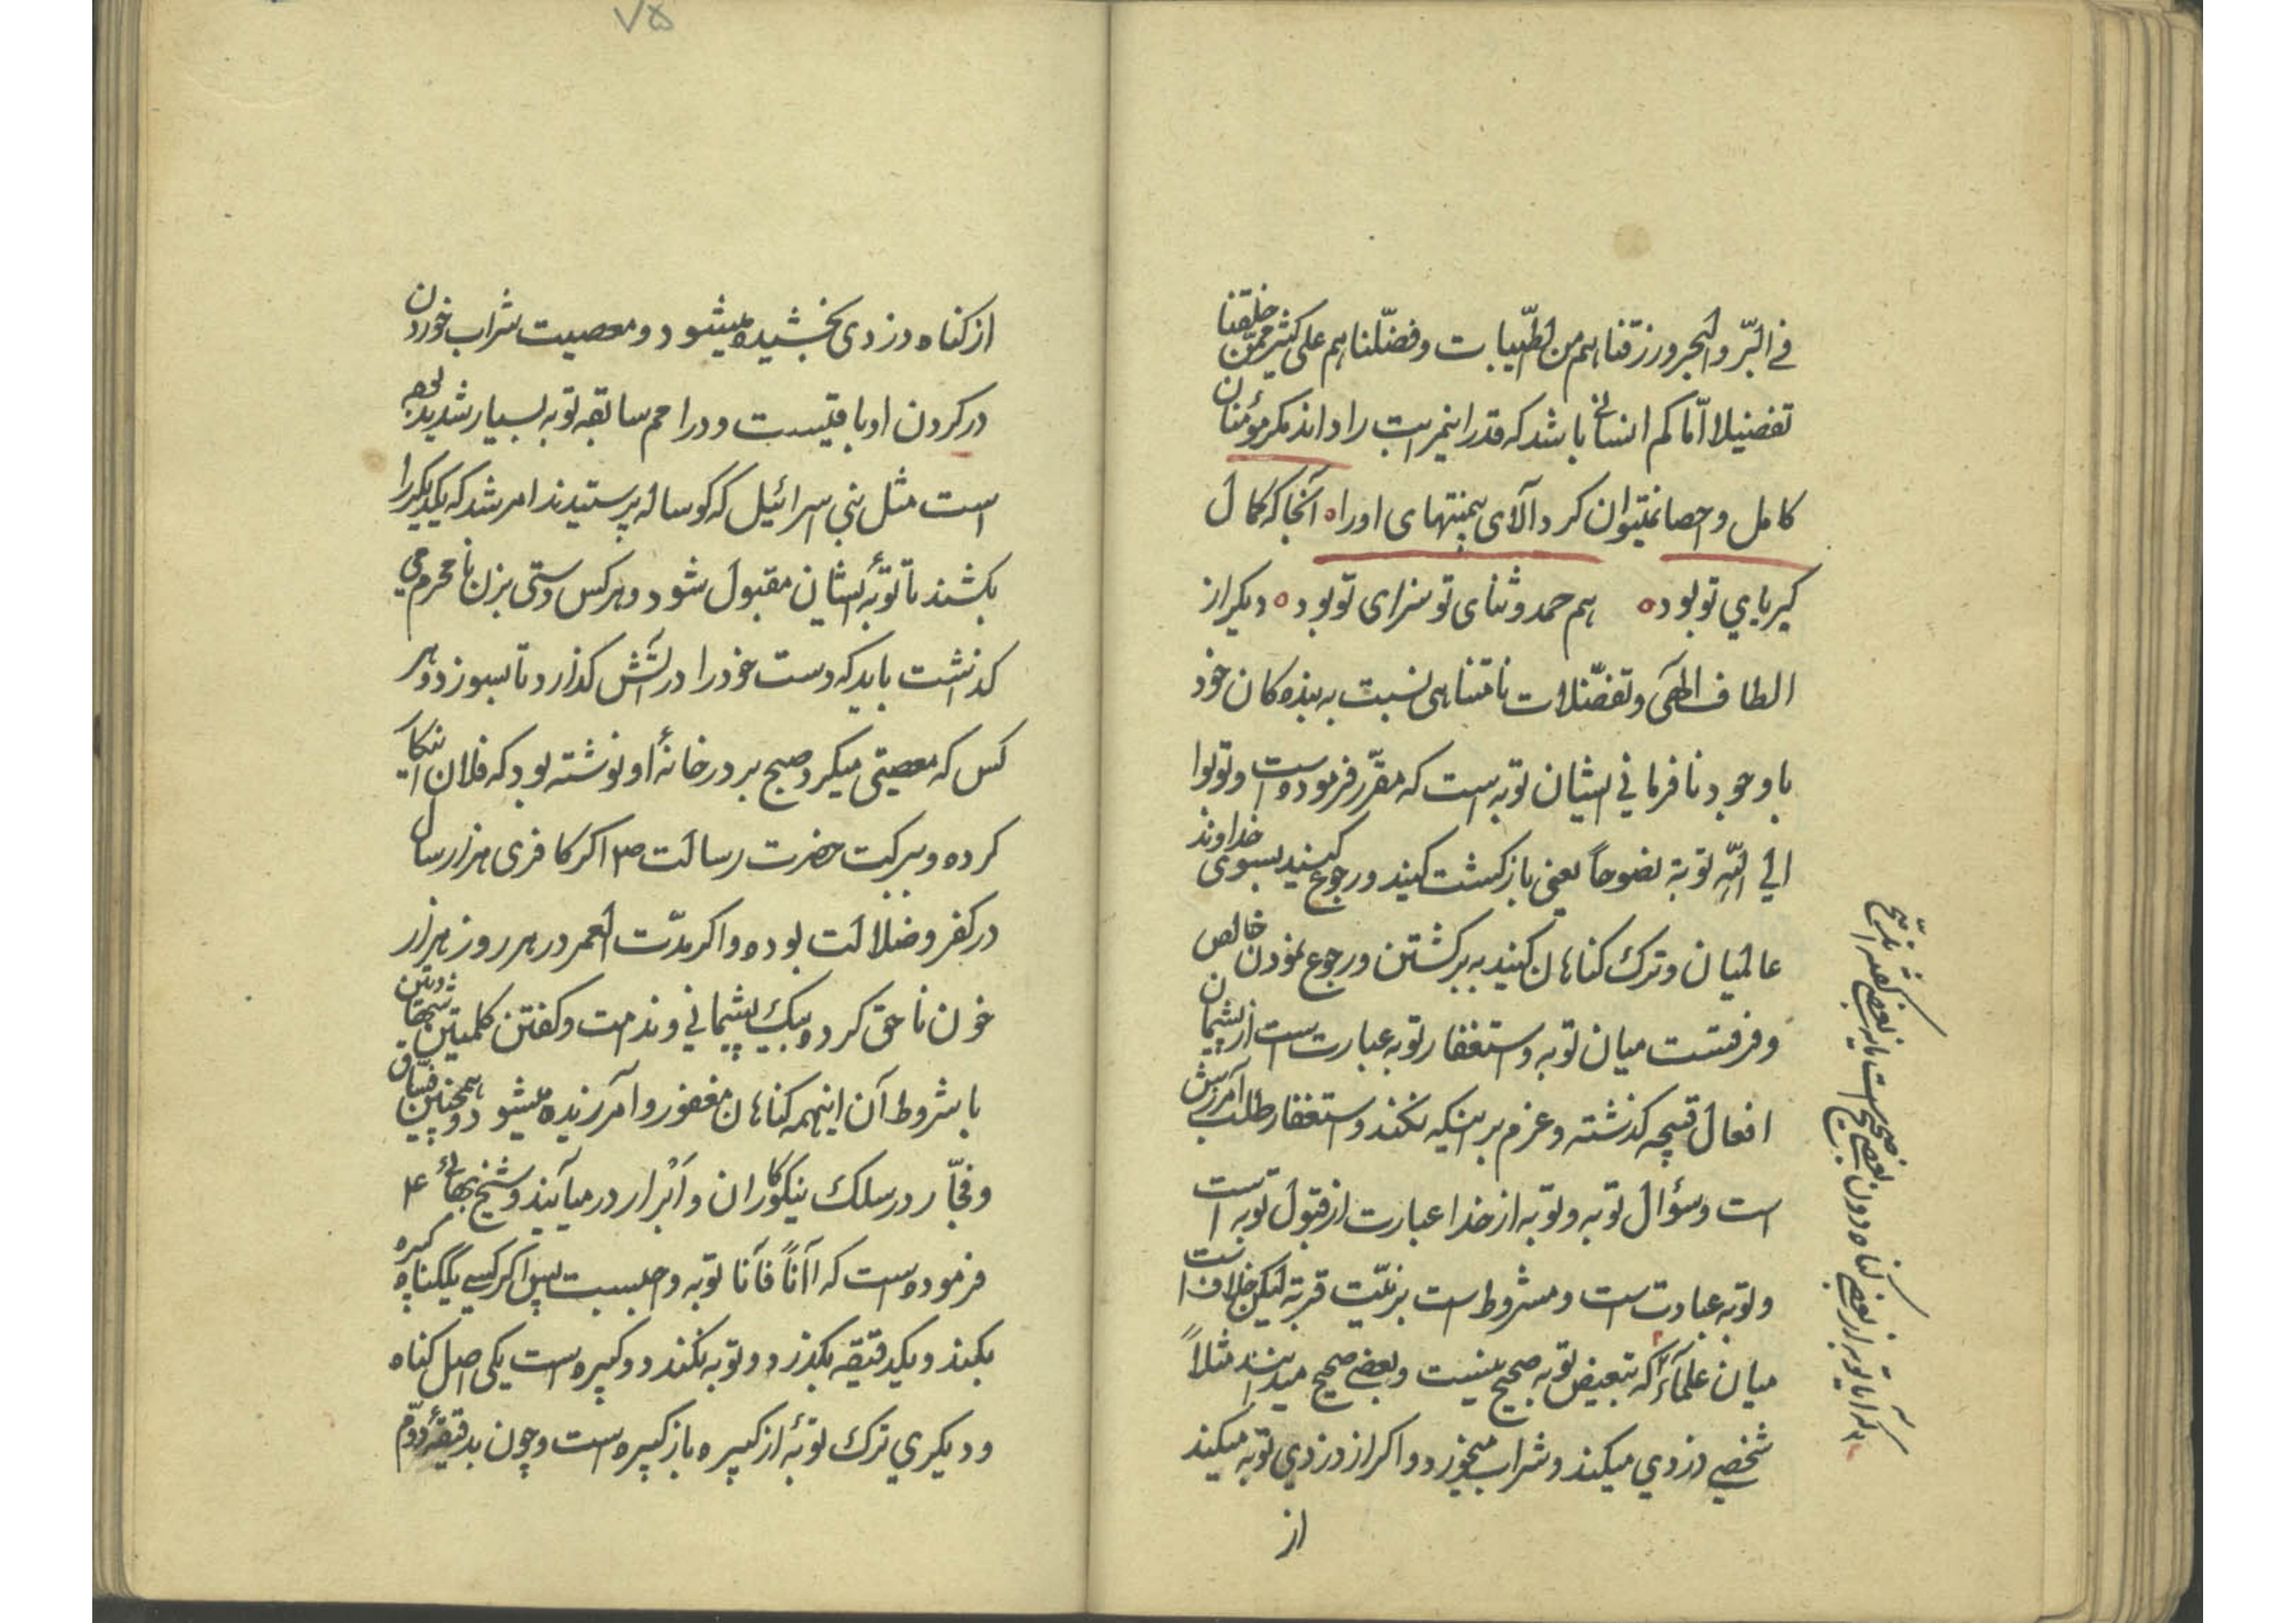 في البرّ والبحر ورزقناهم من الطّيبات وفضّلناهم علی کثیر ممّن خلقنا
تفضیلا امّا کم انسانی باشد که قدر اینمرتبت را داند مکر مؤمنان
کامل و احصا نمیتوان کرد آلای بیمنتهای او را ه آنجا که کمال
کبریای تو بود ه هم حمد و ثنای تو سزای تو بود ه دیکر از
الطاف الهی و تفضّلات نامتناهی نسبت به بنده کان خود
با وجود نافرمانی ایشان توبه است که مقرّر فرموده است و توبوا
الی اللّه توبة نصوحاً یعنی بازکشت کنید و رجوع کنید بسوی خداوند
عالمیان و ترک کناهان کنید به برکشتن و رجوع نمودن خالص
و فرقست میان توبه و استغفار توبه عبارت است از پشیمان
افعال قبیحه کذشته و عزم بر اینکه نکند و استغفار طلب آمرزش
است و سؤال توبه و توبه از خدا عبارت از قبول توبه است
و توبه عبادت است و مشروط است بر نیّت قربة لیکن خلاف است
میان علماء که تبعیض توبه صحیح نیست و بعضی صحیح میدانند مثلاً
شخصی دزدی میکند و شراب میخورد و اکر از دزدی توبه میکند
از
که آیا توبه از بعضی کناه دون بعضی صحیح است یا نه بعضی
۷۵
از کناه دزدی بخشیده میشود و معصیت شراب خوردن
در کردن او باقیست و در امم سابقه توبه بسیار شدید بوده
است مثل بنی اسرائیل که کوساله پرستیدند امر شد که یکدیکر را
بکشند تا توبۀ ایشان مقبول شود و هر کس دستی بزن نامحرم می
کذاشت باید که دست خود را در آتش کذارد تا بسوزد و هر
کس که معصیتی میکرد صبح بر در خانۀ او نوشته بود که فلان
کرده و ببرکت حضرت رسالت ص۴ اکر کافری هزار سال
در کفر و ضلالت بوده و اکر مدّت العمر در هر روز هزار
خون ناحق کرده بیک پشیمانی و ندامت و کفتن کلمتین شهادتین
با شروط آن اینهمه کناهان مغفور و آمرزیده میشود و همچنین فسّاق
و فجّار در سلک نیکوکاران و ابرار در میآیند و شیخ بهائی ۴
فرموده است که آناً فآنا توبه واجبست پس اکر کسی یک کناه کبیره
بکند و یکدقیقه بکذرد و توبه نکند دو کبیره است یکی اصل کناه
و دیکری ترک توبۀ از کبیره باز کبیره است و چون بدقیقۀ دوّم